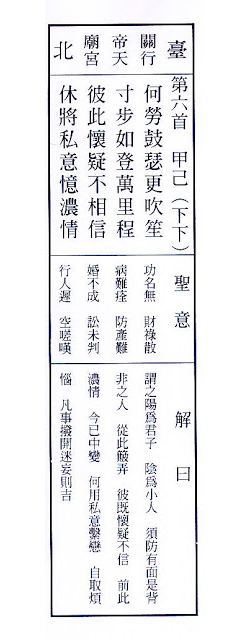 臺
關行
帝天
廟宮
北
第六首 甲己(下下)
何勞鼓瑟更吹笙
寸步如登萬里程
彼此懷疑不相信
休將私意憶濃情
聖意
功名無 財祿散
病難痊 防產難
婚不成 訟未判
行人遲 空嗟嘆
解曰
謂之陽爲君子 陰爲小人 須防有面是背
非之人 從此簸弄 彼既懷疑不信 前此
濃情 今已中變 何用私意繫戀 自取煩
惱 凡事撥開迷妄則吉